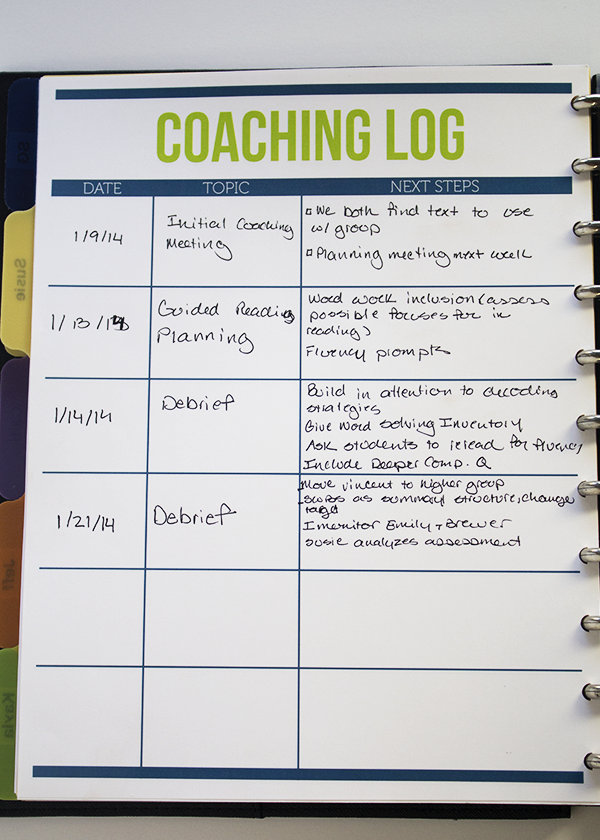 COACHING LOG
DATE TOPIC NEXT STEPS
1/9/14
Initial Coaching
Meeting
We both find text to use
w/ group
Planning meeting next week
1/13/
Guided Reading
Planning
Word work inclusion (assess
possible focuses for in
reading)
Fluency prompts
1/14/14
Debrief
Build in attention to decoding
strategies
Give Word Solving Inventory
Ask students to reread for fluency
Include Deeper Comp. Q
1/21/14
Debrief
Move Vincent to higher group
SWBS as summary structure, change
target
I monitor Emily + Brewer
Susie analyzes assessment
Susie
Jeff
Kayla